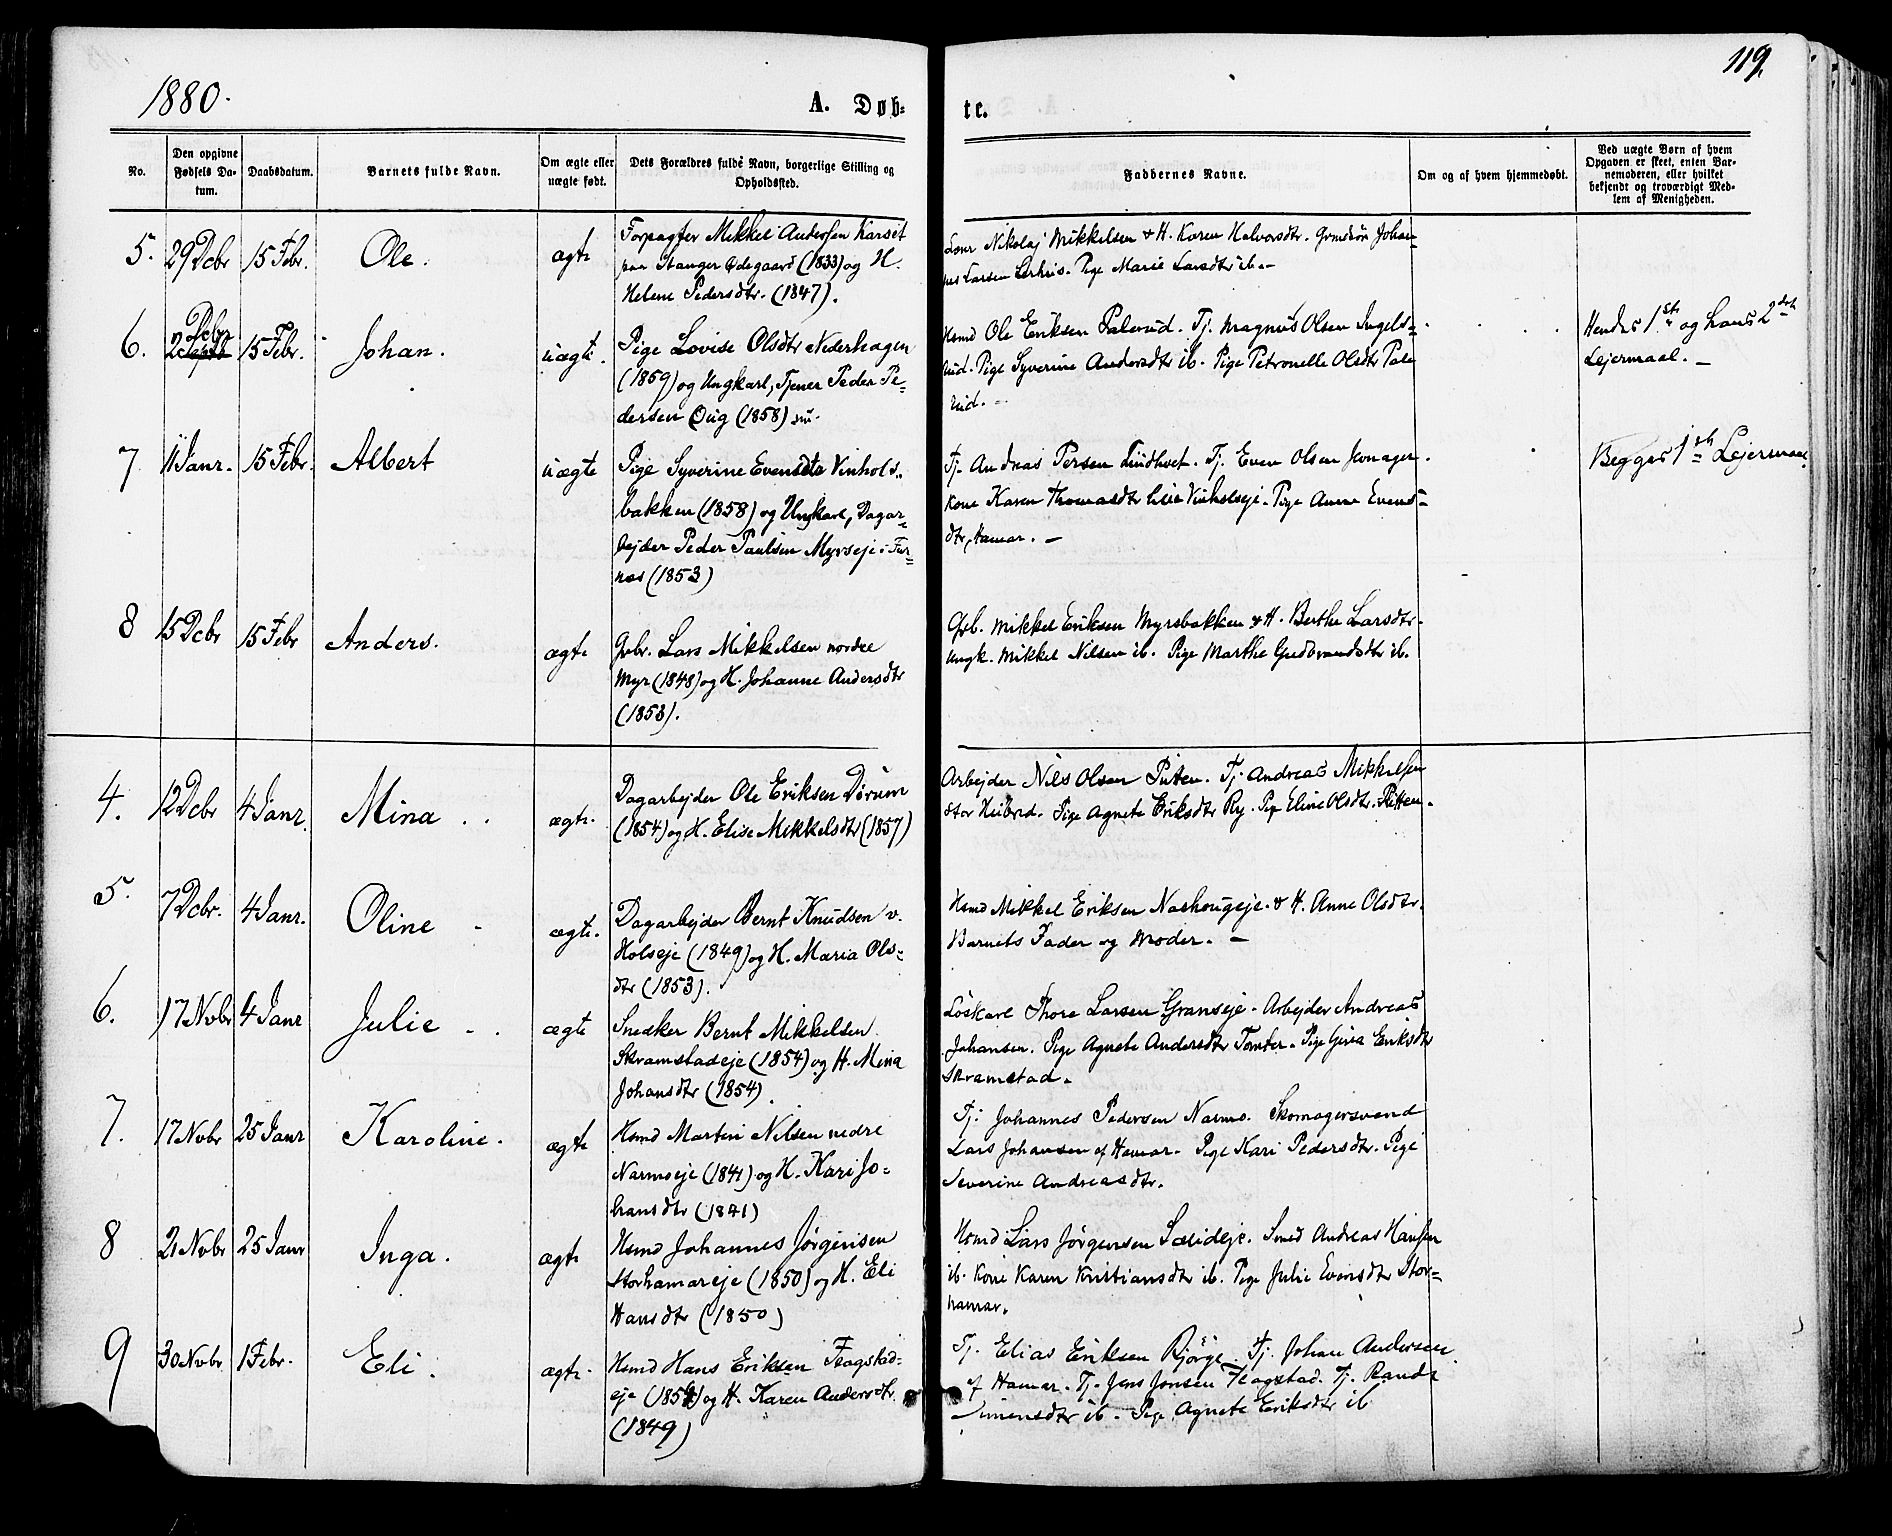 1880.
A. Døb=
te.
119.
No.
Den opgivne Fødsels Datum.
Daabsdatum.
Barnets fulde Navn.
Om ægte eller uægte født.
Dets Forældres fulde Navn, borgerlige Stilling og Opholdssted.
Faddernes Navne.
Om og af hvem hjemmedøbt.
Ved uægte Børn af hvem Opgaven er skeet, enten Barnemoderen, eller hvilket bekjendt og troværdigt Medlem af Menigheden.
5. 29 Dcbr 15 Febr. Ole. ægte
Forpagter Mikkel Andersen Karset
paa Stanger Ødegaard (1833) og H.
Helene Pedersdtr. (1847).
Nikolaj Mikkelsen & H. Karen Halvorsdtr. Johan-
nes Larsen Pige Marie Larsdtr ib. -
6. 2 Dcbr 15 Febr. Johan. uægte.
Pige Lovise Olsdtr Nederhagen
(1859) og Ungkarl, Tjener Peder Pe-
dersen (1858)
Hsmd Ole Eriksen Palerud. Tj. Magnus Olsen Ingels=
rud. Pige Syverine Andersdtr ib. Pige Petronelle Olsdtr Pale
rud. -
Hendes 1ste og hans 2det
Lejermaal. -
7 11 Janr. 15 Febr. Albert uægte
Pige Syverine Evensdtr Vinhols-
bakken (1858) og Ungkarl, Dagar=
bejder Peder Paulsen Myrseje i Fur=
nes (1853)
Tj. Andreas Persen Lundhvet. Tj. Even Olsen
Kone Karen Thomasdtr Pige Anne Evens=
dtr, Hamar. -
Begges 1ste Lejermaal
8 15 Dcbr 15 Febr Anders. ægte
Gbr. Lars Mikkelsen nordre
Myr (1848) og H. Johanne Andersdtr
(1853).
Gbr. Mikkel Eriksen Myrsbakken & H. Berthe Larsdtr.
Ungk. Mikkel Nilsen ib. Pige Marthe Gudbrandsdtr ib.
4. 12 Dcbr 4 Janr. Mina . . ægte.
Dagarbejder Ole Eriksen Dørum
(1854) og H. Elise Mikkelsdtr (1857)
Arbejder Nils Olsen Tj. Andreas Mikkelsen
stor Pige Agnete Eriksdtr Ry. Pige Eline Olsdtr.
5. 7 Dcbr. 4 Janr. Oline - ægte.
Dagarbejder Bernt Knudsen v.
Holseje (1849) og H. Maria Ols-
dtr (1853).
Hsmd Mikkel Eriksen Nashougeje. & H. Anne Olsdtr.
Barnets Fader og Moder. -
6. 17 Nobr 4 Janr Julie - . ægte
Snedker Bernt Mikkelsen
Skramstadeje (1854) og H. Mina
Johansdtr (1854).
Løskarl Thore Larsen Granseje. Arbejder Andreas
Johansen. Pige Agnete Andersdtr Tomter. Pige Eriksdtr
Skramstad.
7. 17 Nobr 25 Janr Karoline. ægte
Hsmd Martin Nilsen nedre
Narmoeje (1841) og H. Kari Jo-
hansdtr (1841)
Tj. Johannes Pedersen Narmo. Skomagersvend
Lars Johansen af Hamar. Pige Kari Pedersdtr. Pige
Severine Andreasdtr.
8 21 Nobr 25 Janr Inga. ægte
Hsmd Johannes Jørgensen
Storhamareje (1850) og H. Eli
Hansdtr (1850)
Hsmd Lars Jørgensen Sælideje. Smed Andreas Hansen
ib. Kone Karen Kristiansdtr ib. Pige Julie Evensdtr Stor=
hamar.
9 30 Nobr 1 Febr. Eli. ægte.
Hsmd Hans Eriksen Flagstad-
eje (1854) og H. Karen Andersdtr.
(1849)
Tj. Elias Eriksen Bjørge. Tj. Johan Andersen
af Hamar. Tj. Jens Jonsen Flagstad. Tj. Randi
Simensdtr ib. Pige Agnete Eriksdtr ib